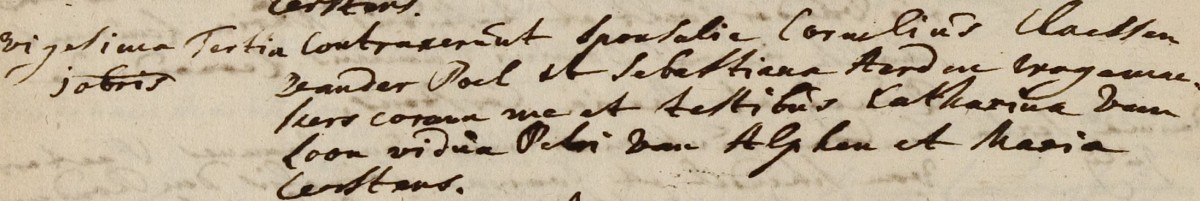 Cerstens.
vigesima Tertia Contraxerunt sponsalia Cornelius Claessen
jobris vander Poel et Sebastiana Aerden wagemae-
kers coram me et testibus Catharina Van
Loon vidua Petri van Alphen et Maria
Cerstens.